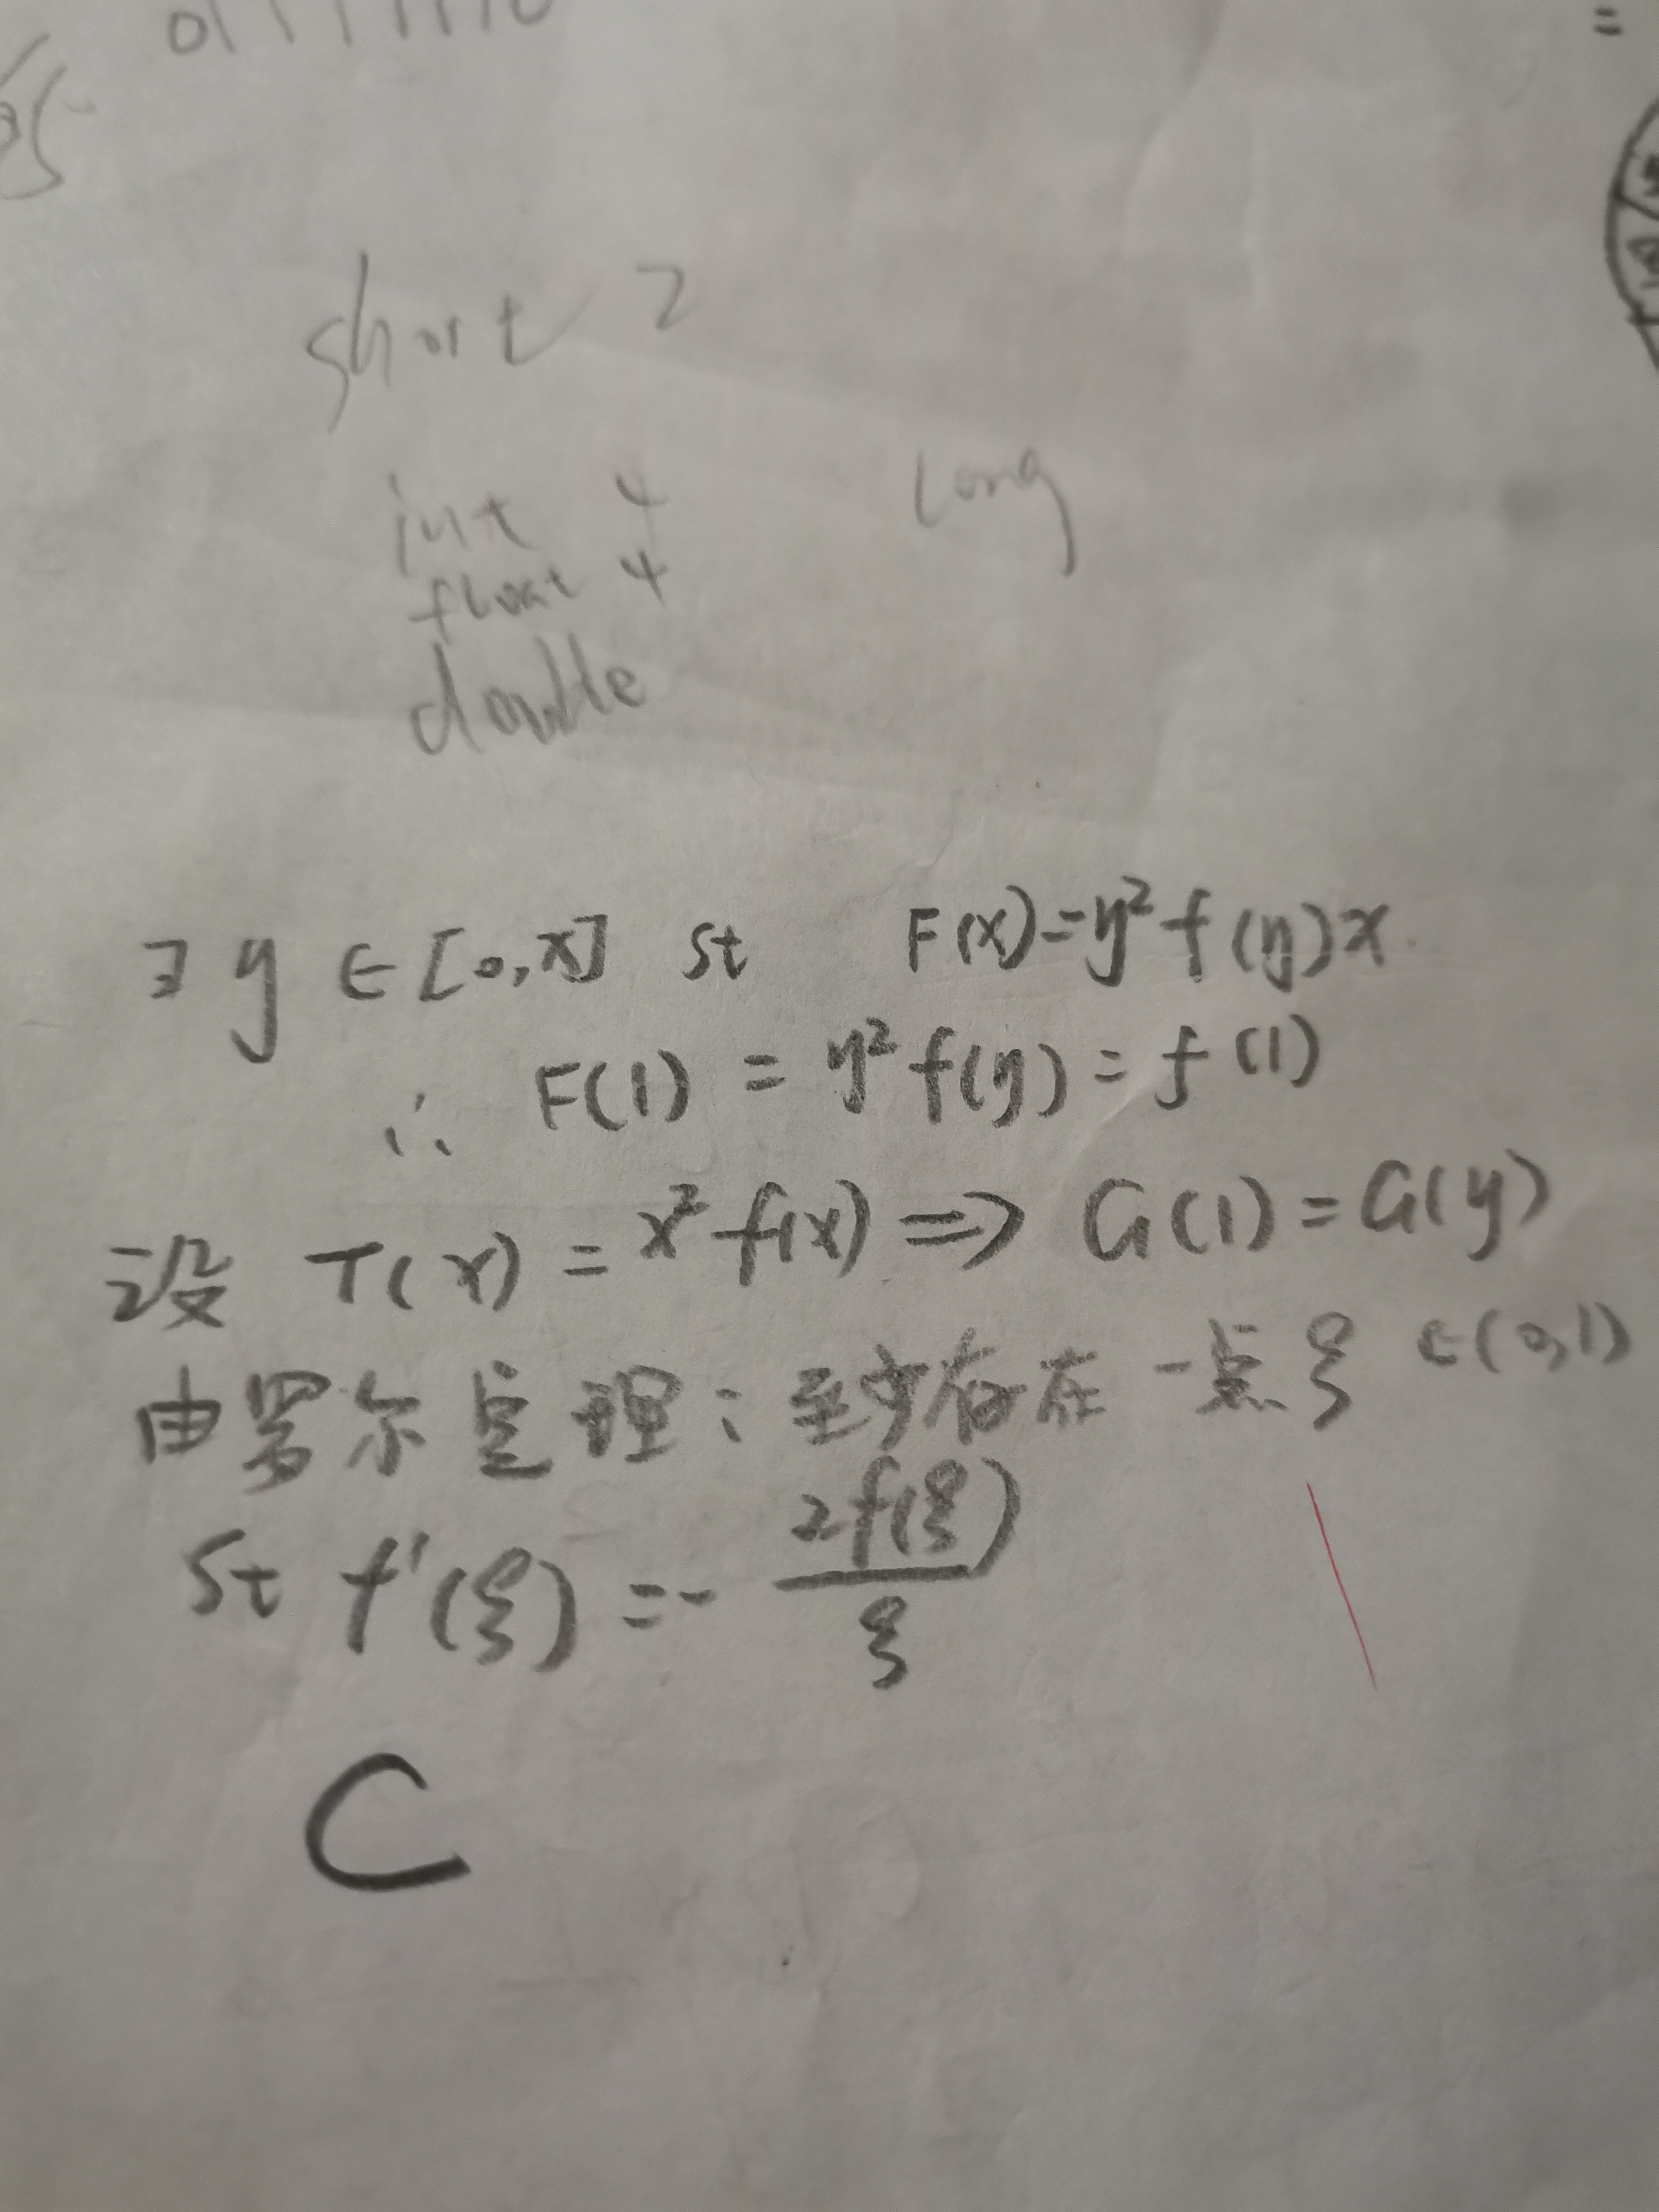 short 2
int 4 long
float 4
double
∃ y ∈ [0,x] st F(x)=y²f(y)x
∴ F(1) = y²f(y) = f(1)
设 T(x) = x²f(x) ⇒ G(1) = G(y)
由罗尔定理：至少存在一点ξ ∈(0,1)
st f'(ξ) = - 2f(ξ)/ξ
C